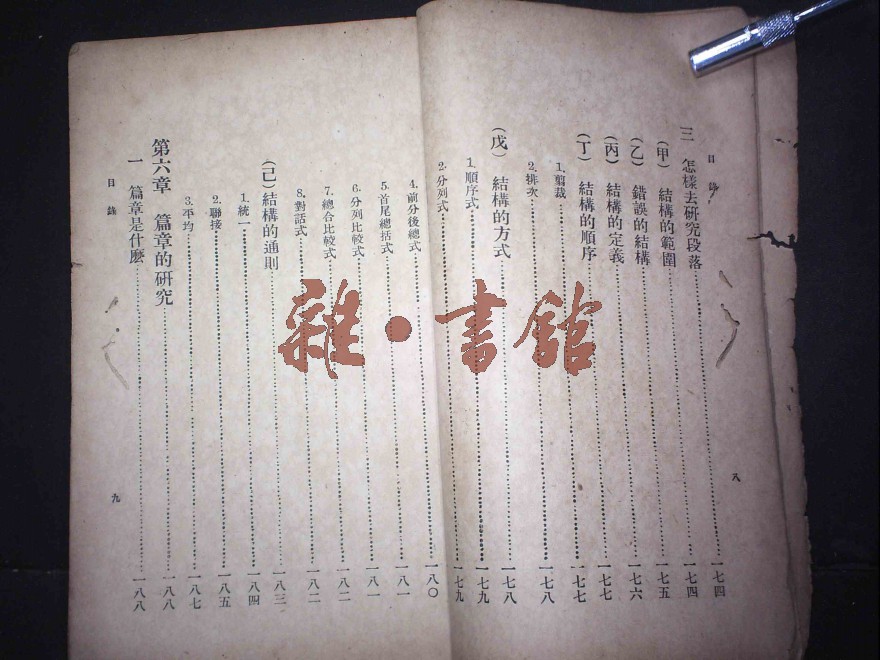 目錄
三 怎樣去研究段落 一七四
(甲) 結構的範圍 一七四
(乙) 錯誤的結構 一七五
(丙) 結構的定義 一七六
(丁) 結構的順序 一七七
1. 剪裁 一七七
2. 排次 一七八
(戊) 結構的方式 一七八
1. 順序式 一七九
2. 分列式 一七九
八
4. 前分後總式 一八〇
5. 首尾總括式 一八一
6. 分列比較式 一八一
7. 總合比較式 一八二
8. 對話式 一八二
(己) 結構的通則 一八三
1. 統一 一八四
2. 聯接 一八五
3. 平均 一八七
第六章 篇章的研究 一八八
一 篇章是什麽 一八八
目錄
九
雜·書館